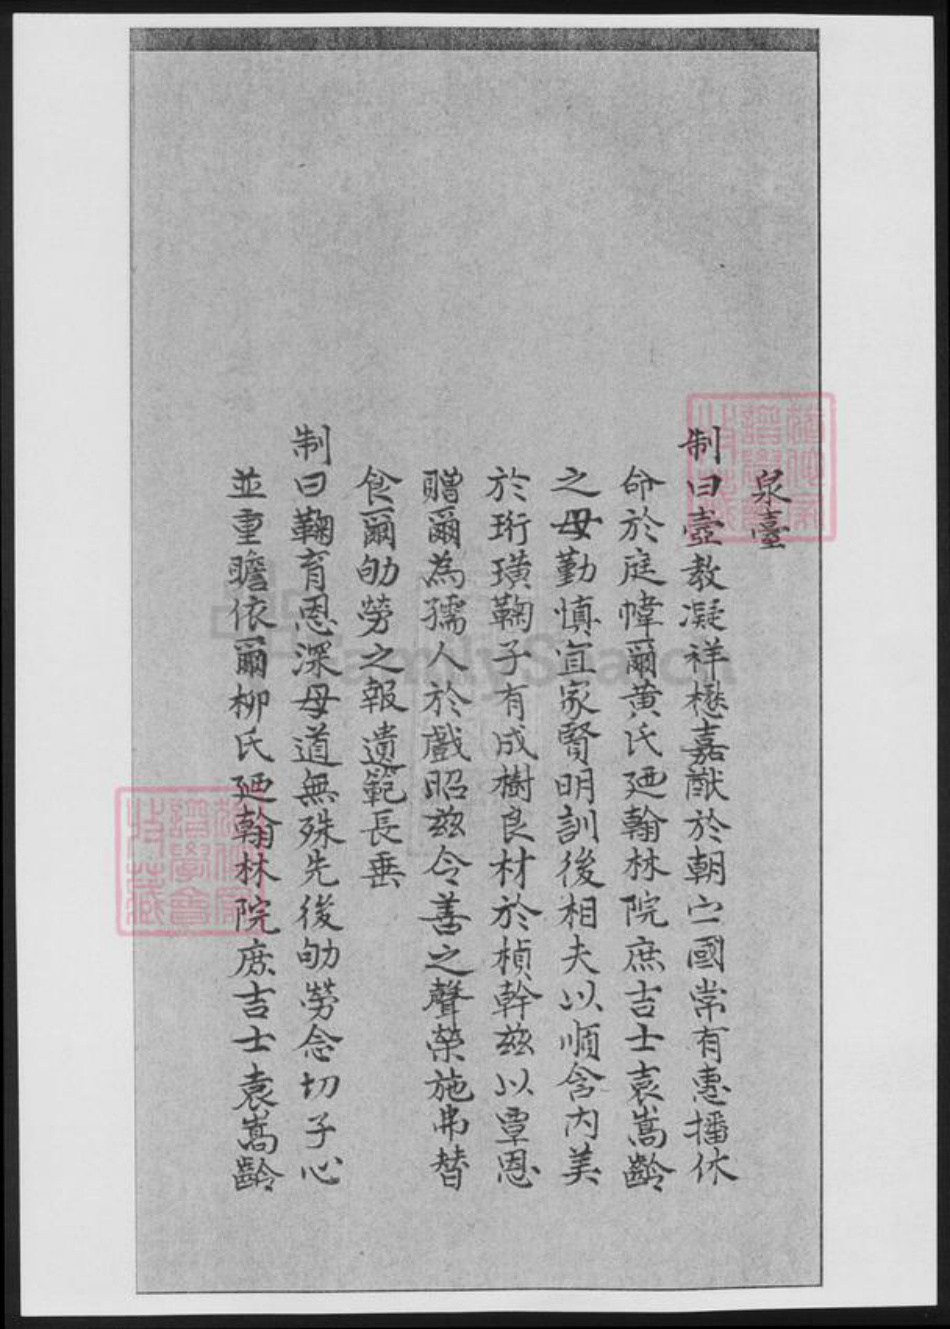 泉臺
制曰壼教凝祥懋嘉猷於朝宁國常有惠播休
命於庭幃爾黄氏廼翰林院庶吉士袁嵩齡
之母勤慎宜家賢明訓後相夫以順含内美
於珩璜鞠子有成樹良材於楨幹兹以覃恩
贈爾為孺人於戲昭兹令善之聲榮施弗替
食爾劬勞之報遺範長垂
制曰鞠育恩深母道無殊先後劬勞念切子心
並重瞻依爾柳氏廼翰林院庶吉士袁嵩齡
FamilySearch